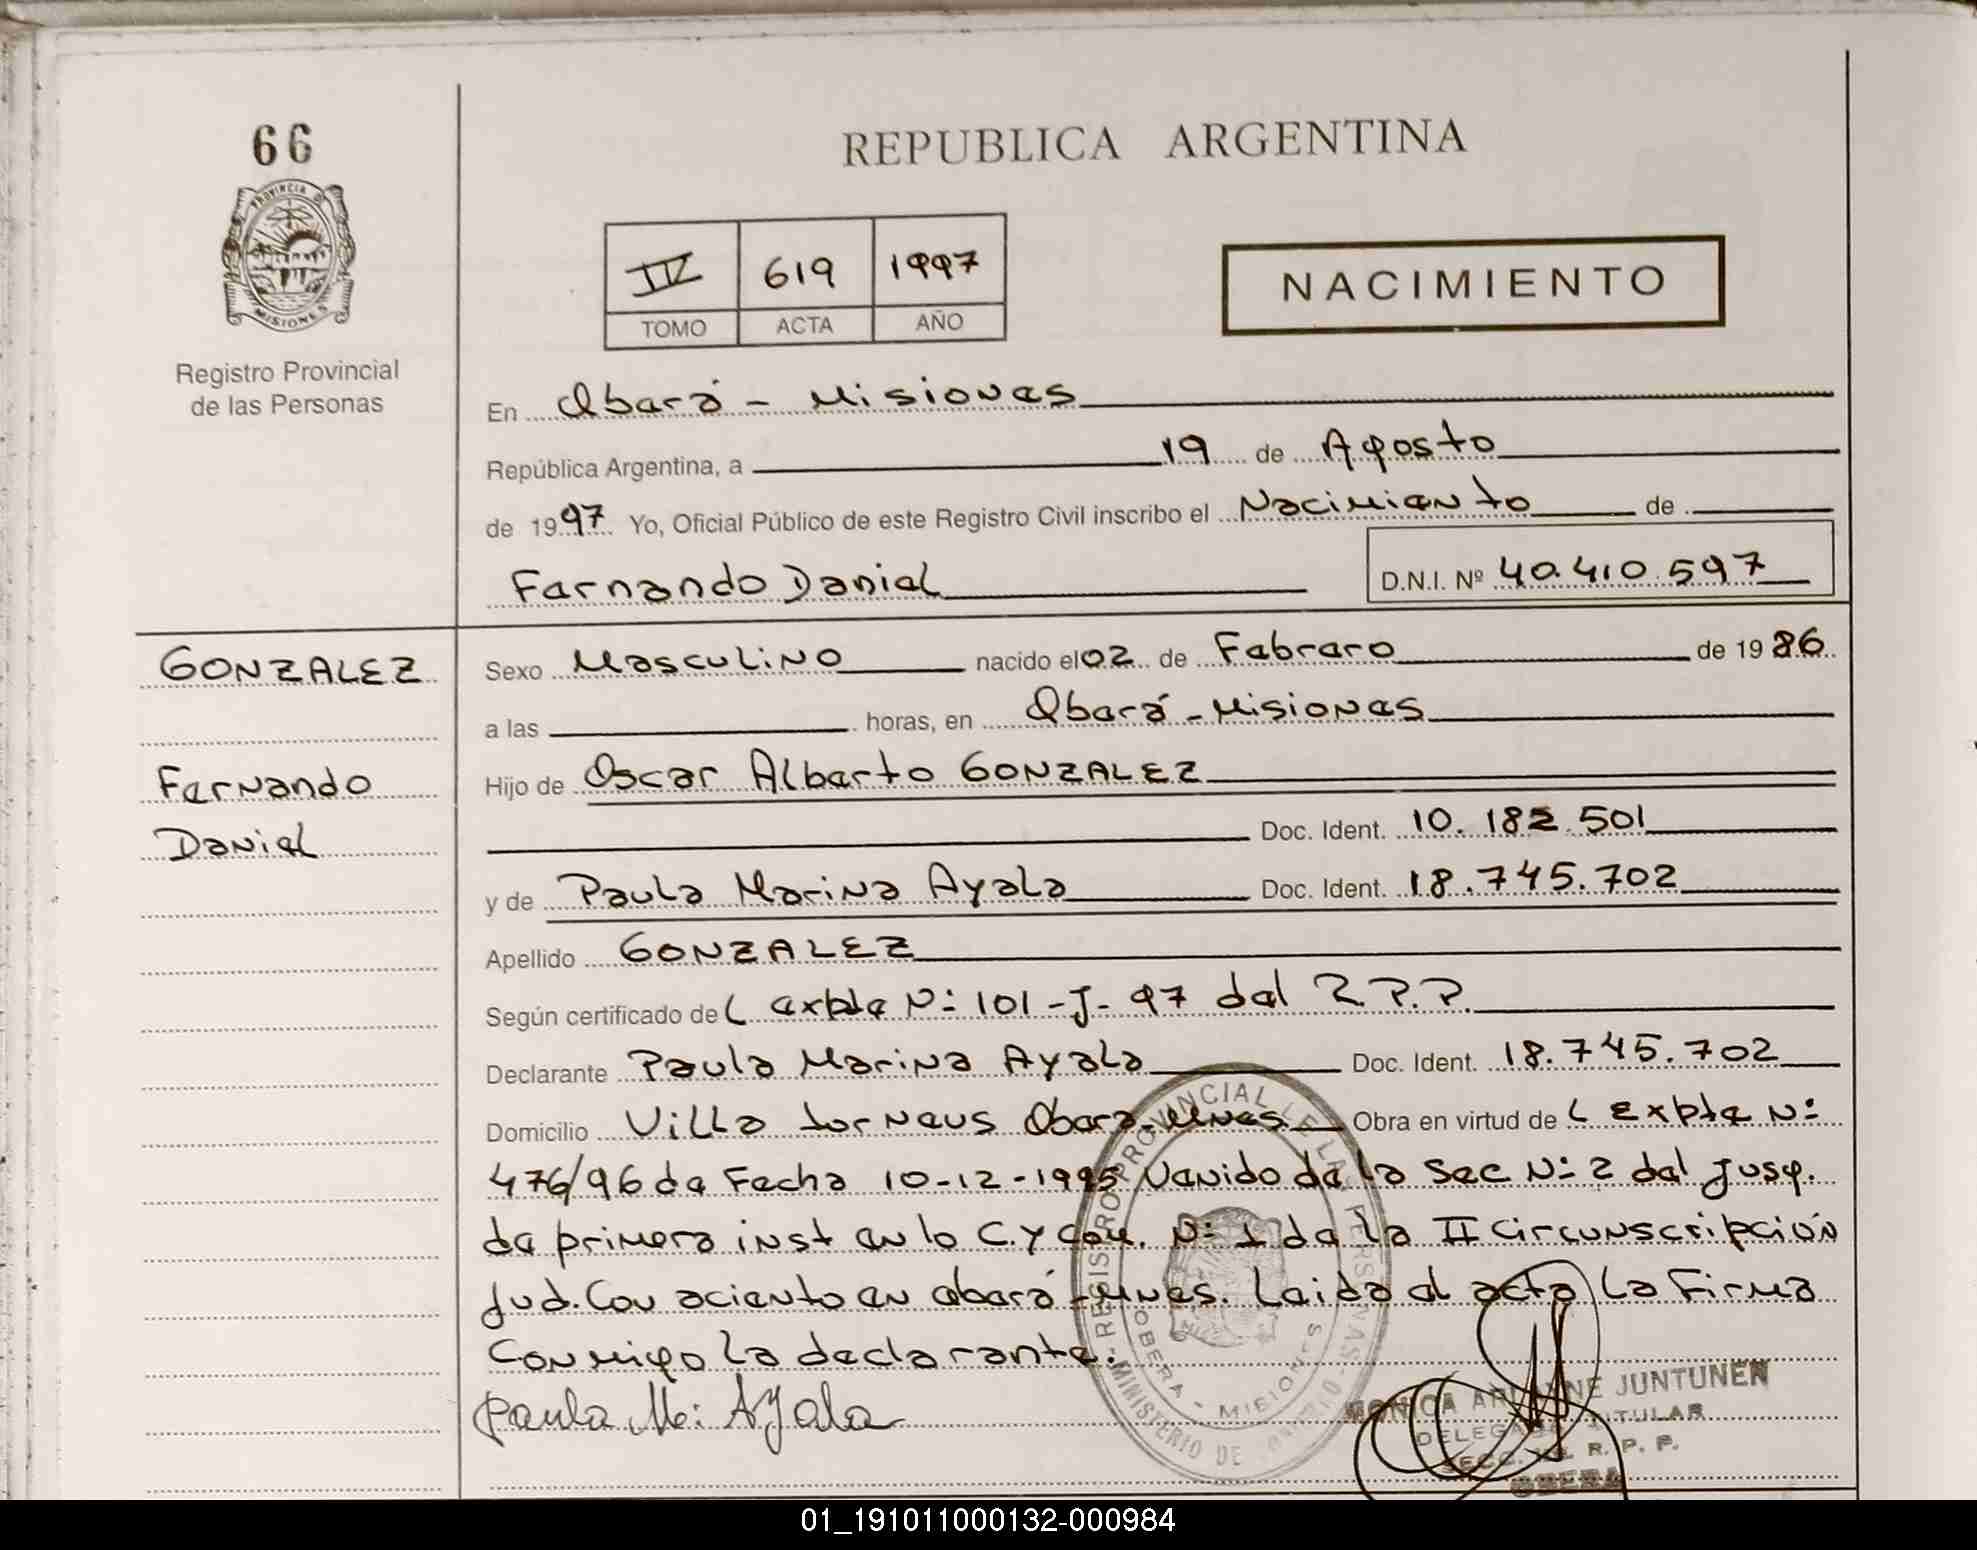 66
PROVINCIA DE
MISIONES
Registro Provincial
de las Personas
REPUBLICA ARGENTINA
619 1997
TOMO ACTA AÑO
NACIMIENTO
En Oberá - Misiones
República Argentina, a 19 de Agosto
de 1997. Yo, Oficial Público de este Registro Civil inscribo el Nacimiento de
Fernando Daniel D.N.I. Nº 40.410.597
GONZALEZ
Fernando
Daniel
Sexo Masculino nacido el 02 de Febrero de 1986
a las horas, en Oberá - Misiones
Hijo de Oscar Alberto GONZALEZ
Doc. Ident. 10.182.501
y de Paula Marina Ayala Doc. Ident. 18.745.702
Apellido GONZALEZ
Según certificado del expte Nº 101-J-97 del R.P.P.
Declarante Paula Marina Ayala Doc. Ident. 18.745.702
Domicilio Villa Oberá-Mnes Obra en virtud del Expte Nº
476/96 de Fecha 10-12-1995 Venido de la Sec Nº 2 del Jusg.
de primera inst en lo C.y Com. Nº 1 de la II Circunscripción
Jud. Con aciento en oberá-Mnes. Leida el acta La Firma
Conmigo La declarante.
Paula M. Ayala
REGISTRO PROVINCIAL DE LAS PERSONAS
OBERA - MISIONES
MINISTERIO DE
MONICA JUNTUNEN
TITULAR
SECC. R. P. P.
OBERA
01_191011000132-000984